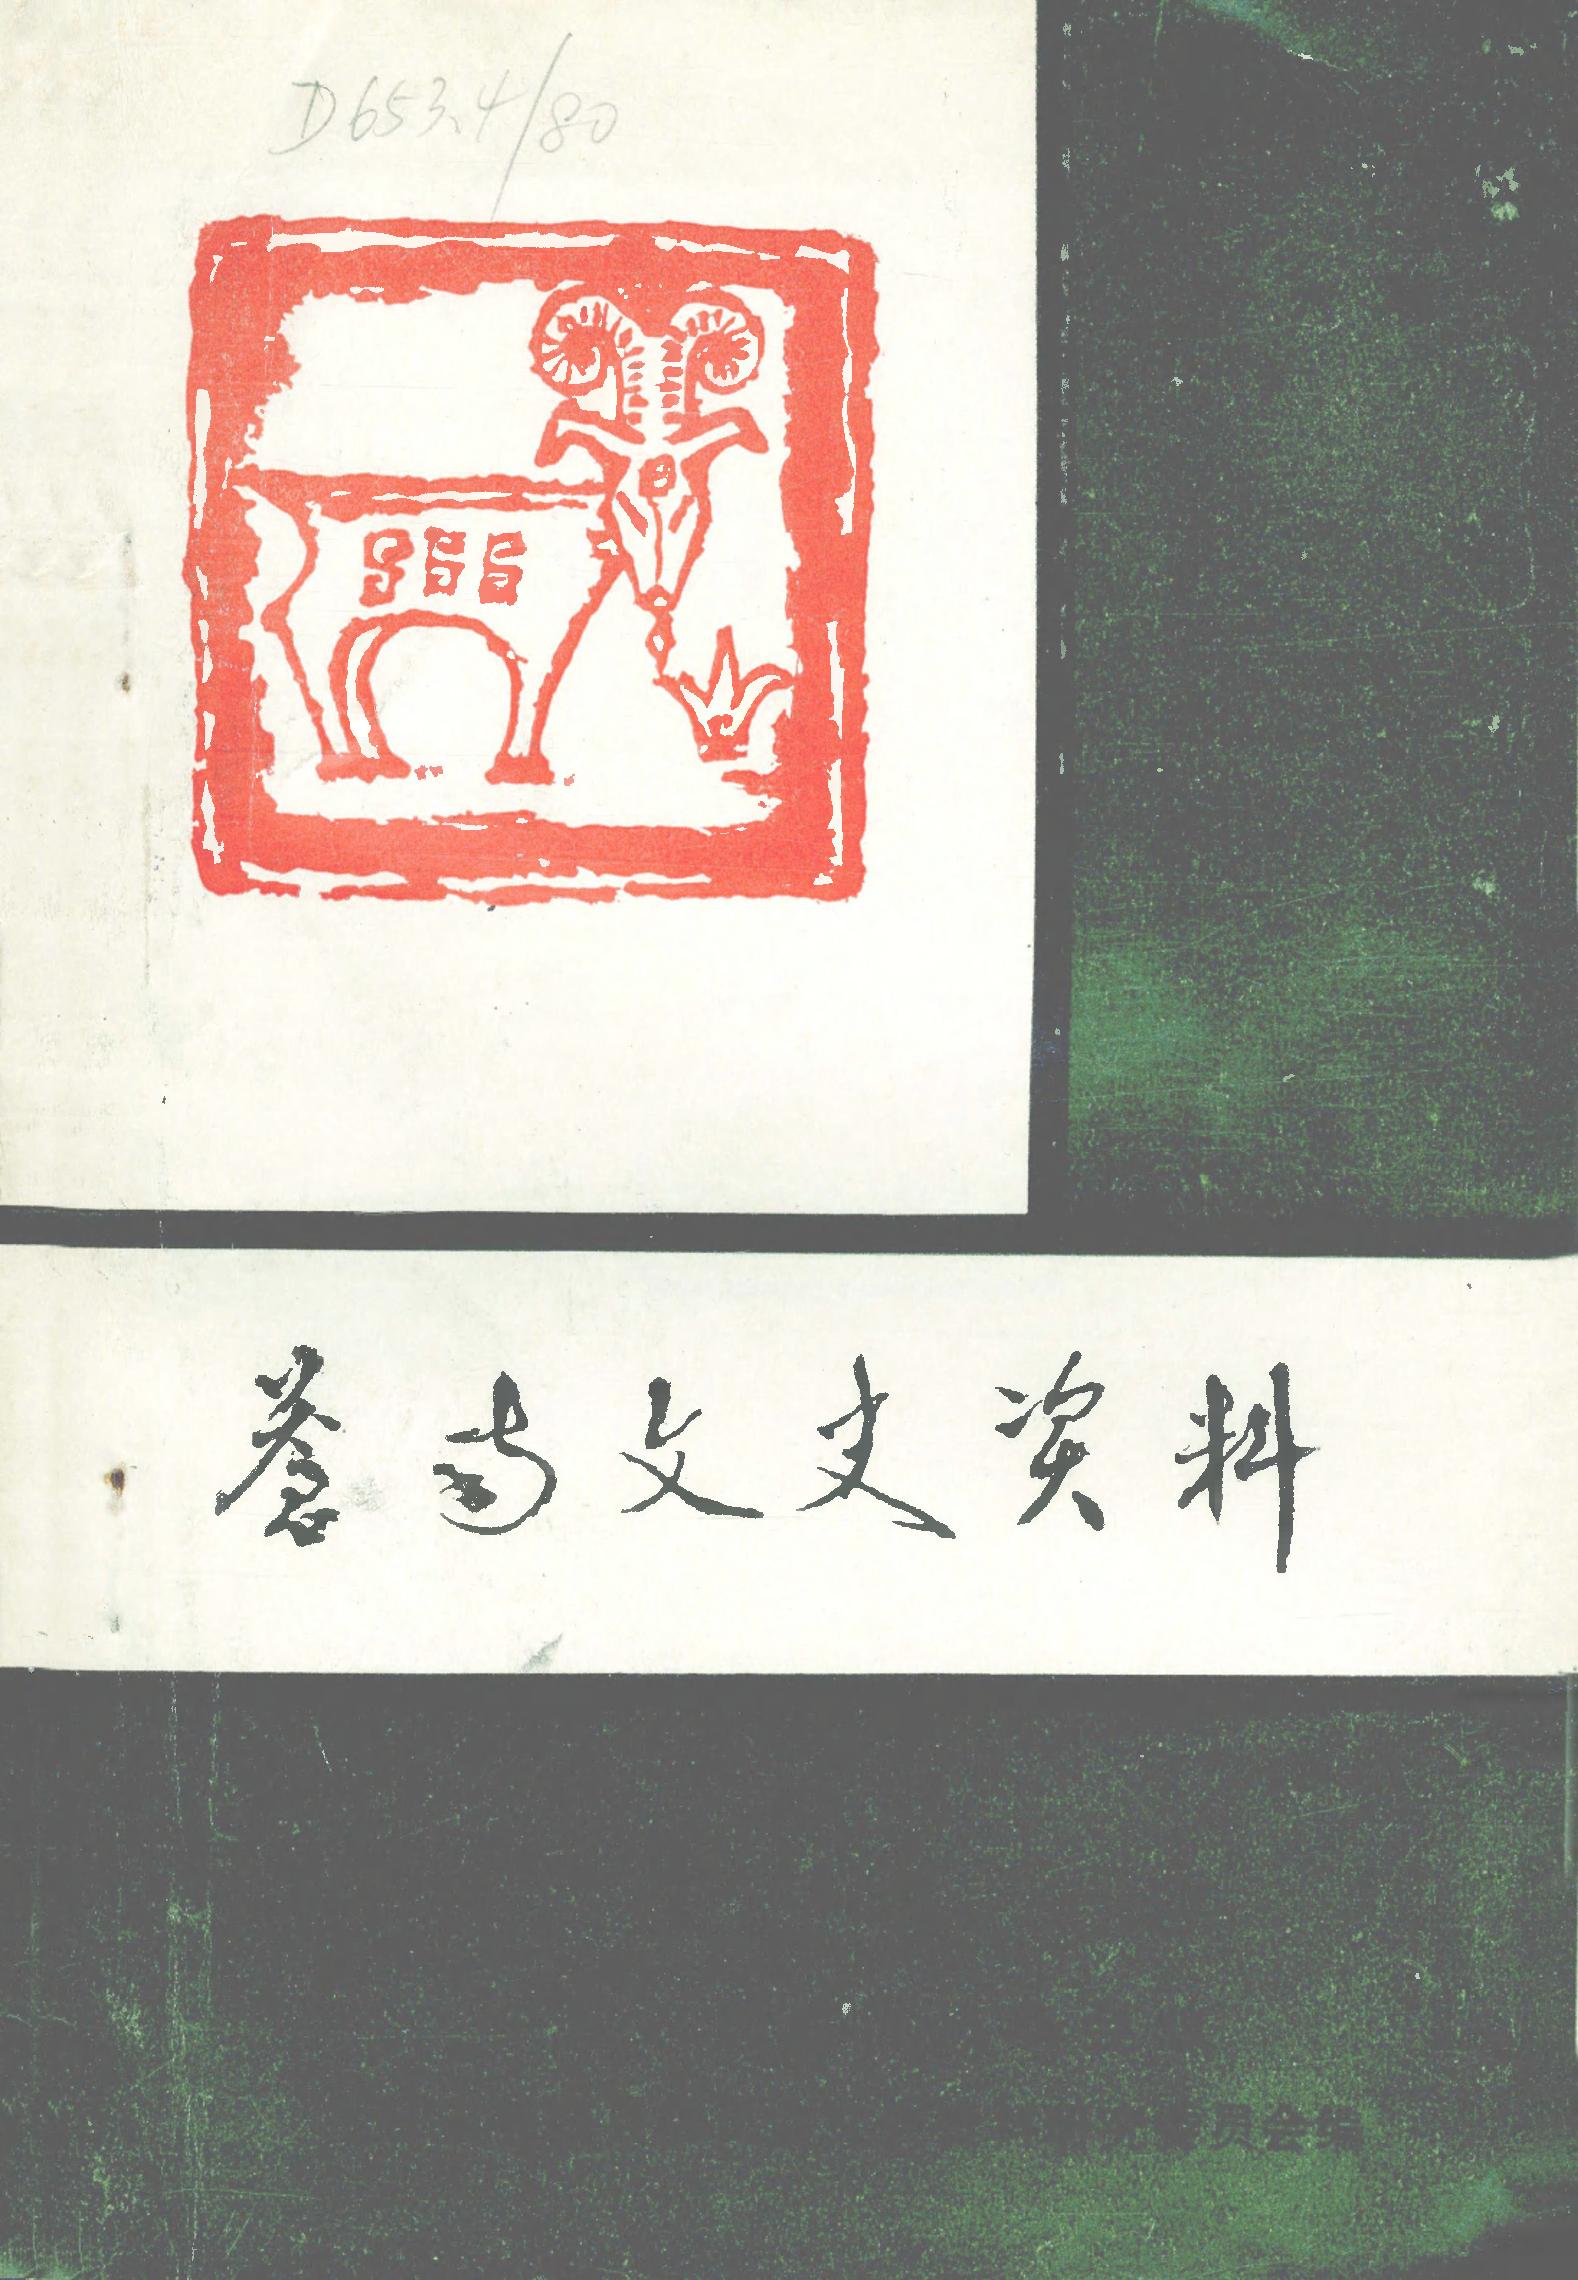 D653.4/80
蒼南文史资料
员会编